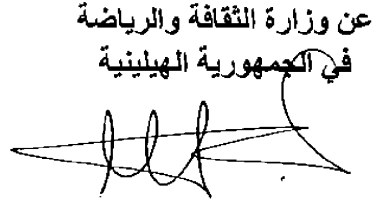 عن وزارة الثقافة والرياضة
في الجمهورية الهيلينية